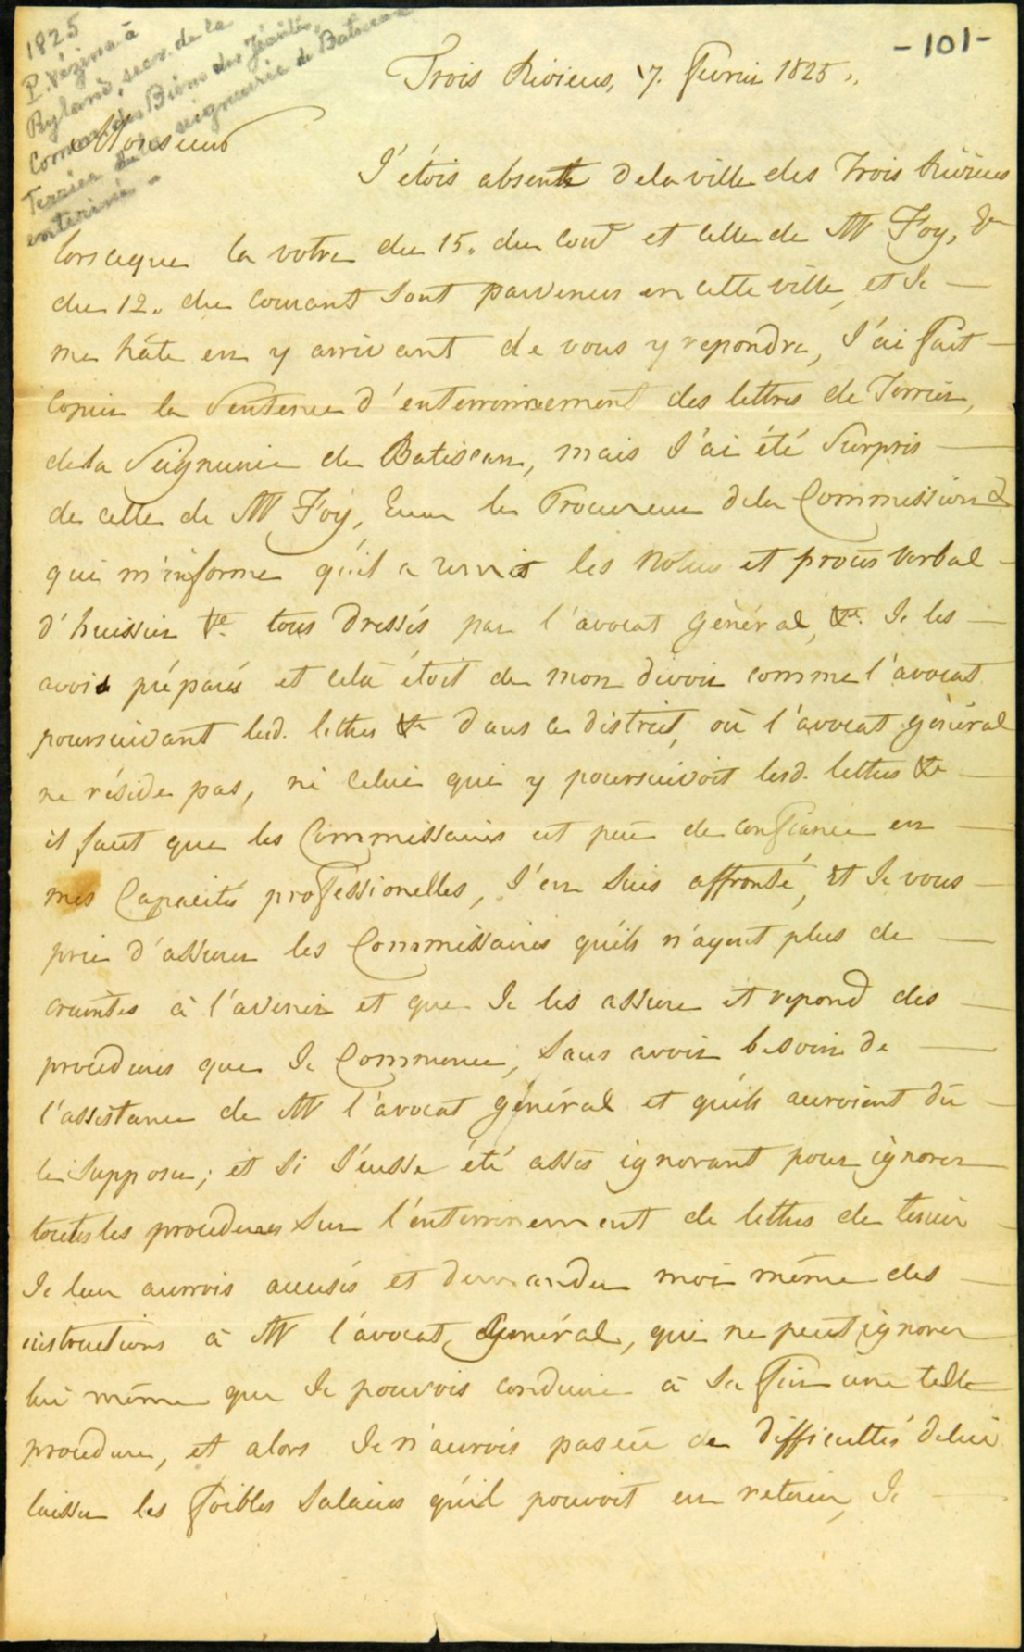 1825
P. Vézina à
Ryland, secr. de la
Comon des Biens des Jésuites,
Terrier de la seigneurie de Batiscan
entériné -
-101-
Trois Rivieres, 17. Fevrier 1825.
Monsieur
J'étois absent de la ville des Trois Rivieres
lorsque la votre du 15. du Cour^t et celle de M^r Foy,
du 12. du Courant sont parvenues en cette ville, et Je
me hâte en y arrivant de vous y repondre, J'ai fait
copier la Sentence d'enterrinnement des lettres de Terrier,
de la Seigneurie de Batiscan, mais J'ai été Surpris
de celle de M^r Foy, le Procureur de la Commission
qui m'informe qu'il a remis les Notes et procès verbal
d'huissier &c. tous dressés par l'avocat général, &c. Je les
avois préparés et cela étoit de mon devoir comme l'avocat
poursuivant lesd. lettres &c dans ce district, où l'avocat général
ne réside pas, ni celui qui y poursuivoit lesd. lettres &c
il faut que les Commissaires ait peu de confiance en
mes Capacités professionelles, J'en suis affronté, et Je vous
prie d'assurer les Commissaires qu'ils n'ayent plus de
craintes à l'avenir et que Je les assure et repond des
procedures que Je Commence, sans avoir besoin de
l'assistance de M^r l'avocat général et qu'ils auroient dû
le supposer; et si J'eusse été assés ignorant pour ignorer
toutes les procedures sur l'enterrinnement de lettres de terrier
Je leur aurrois accusés et demander moi même des
instructions à M^r l'avocat Général, qui ne peut ignorer
lui même que Je pouvois conduire à sa fin une telle
procedure, et alors Je n'aurois pas eû de difficultés de lui
laisser les foibles Salaires qu'il pouvoit en retirer, Je